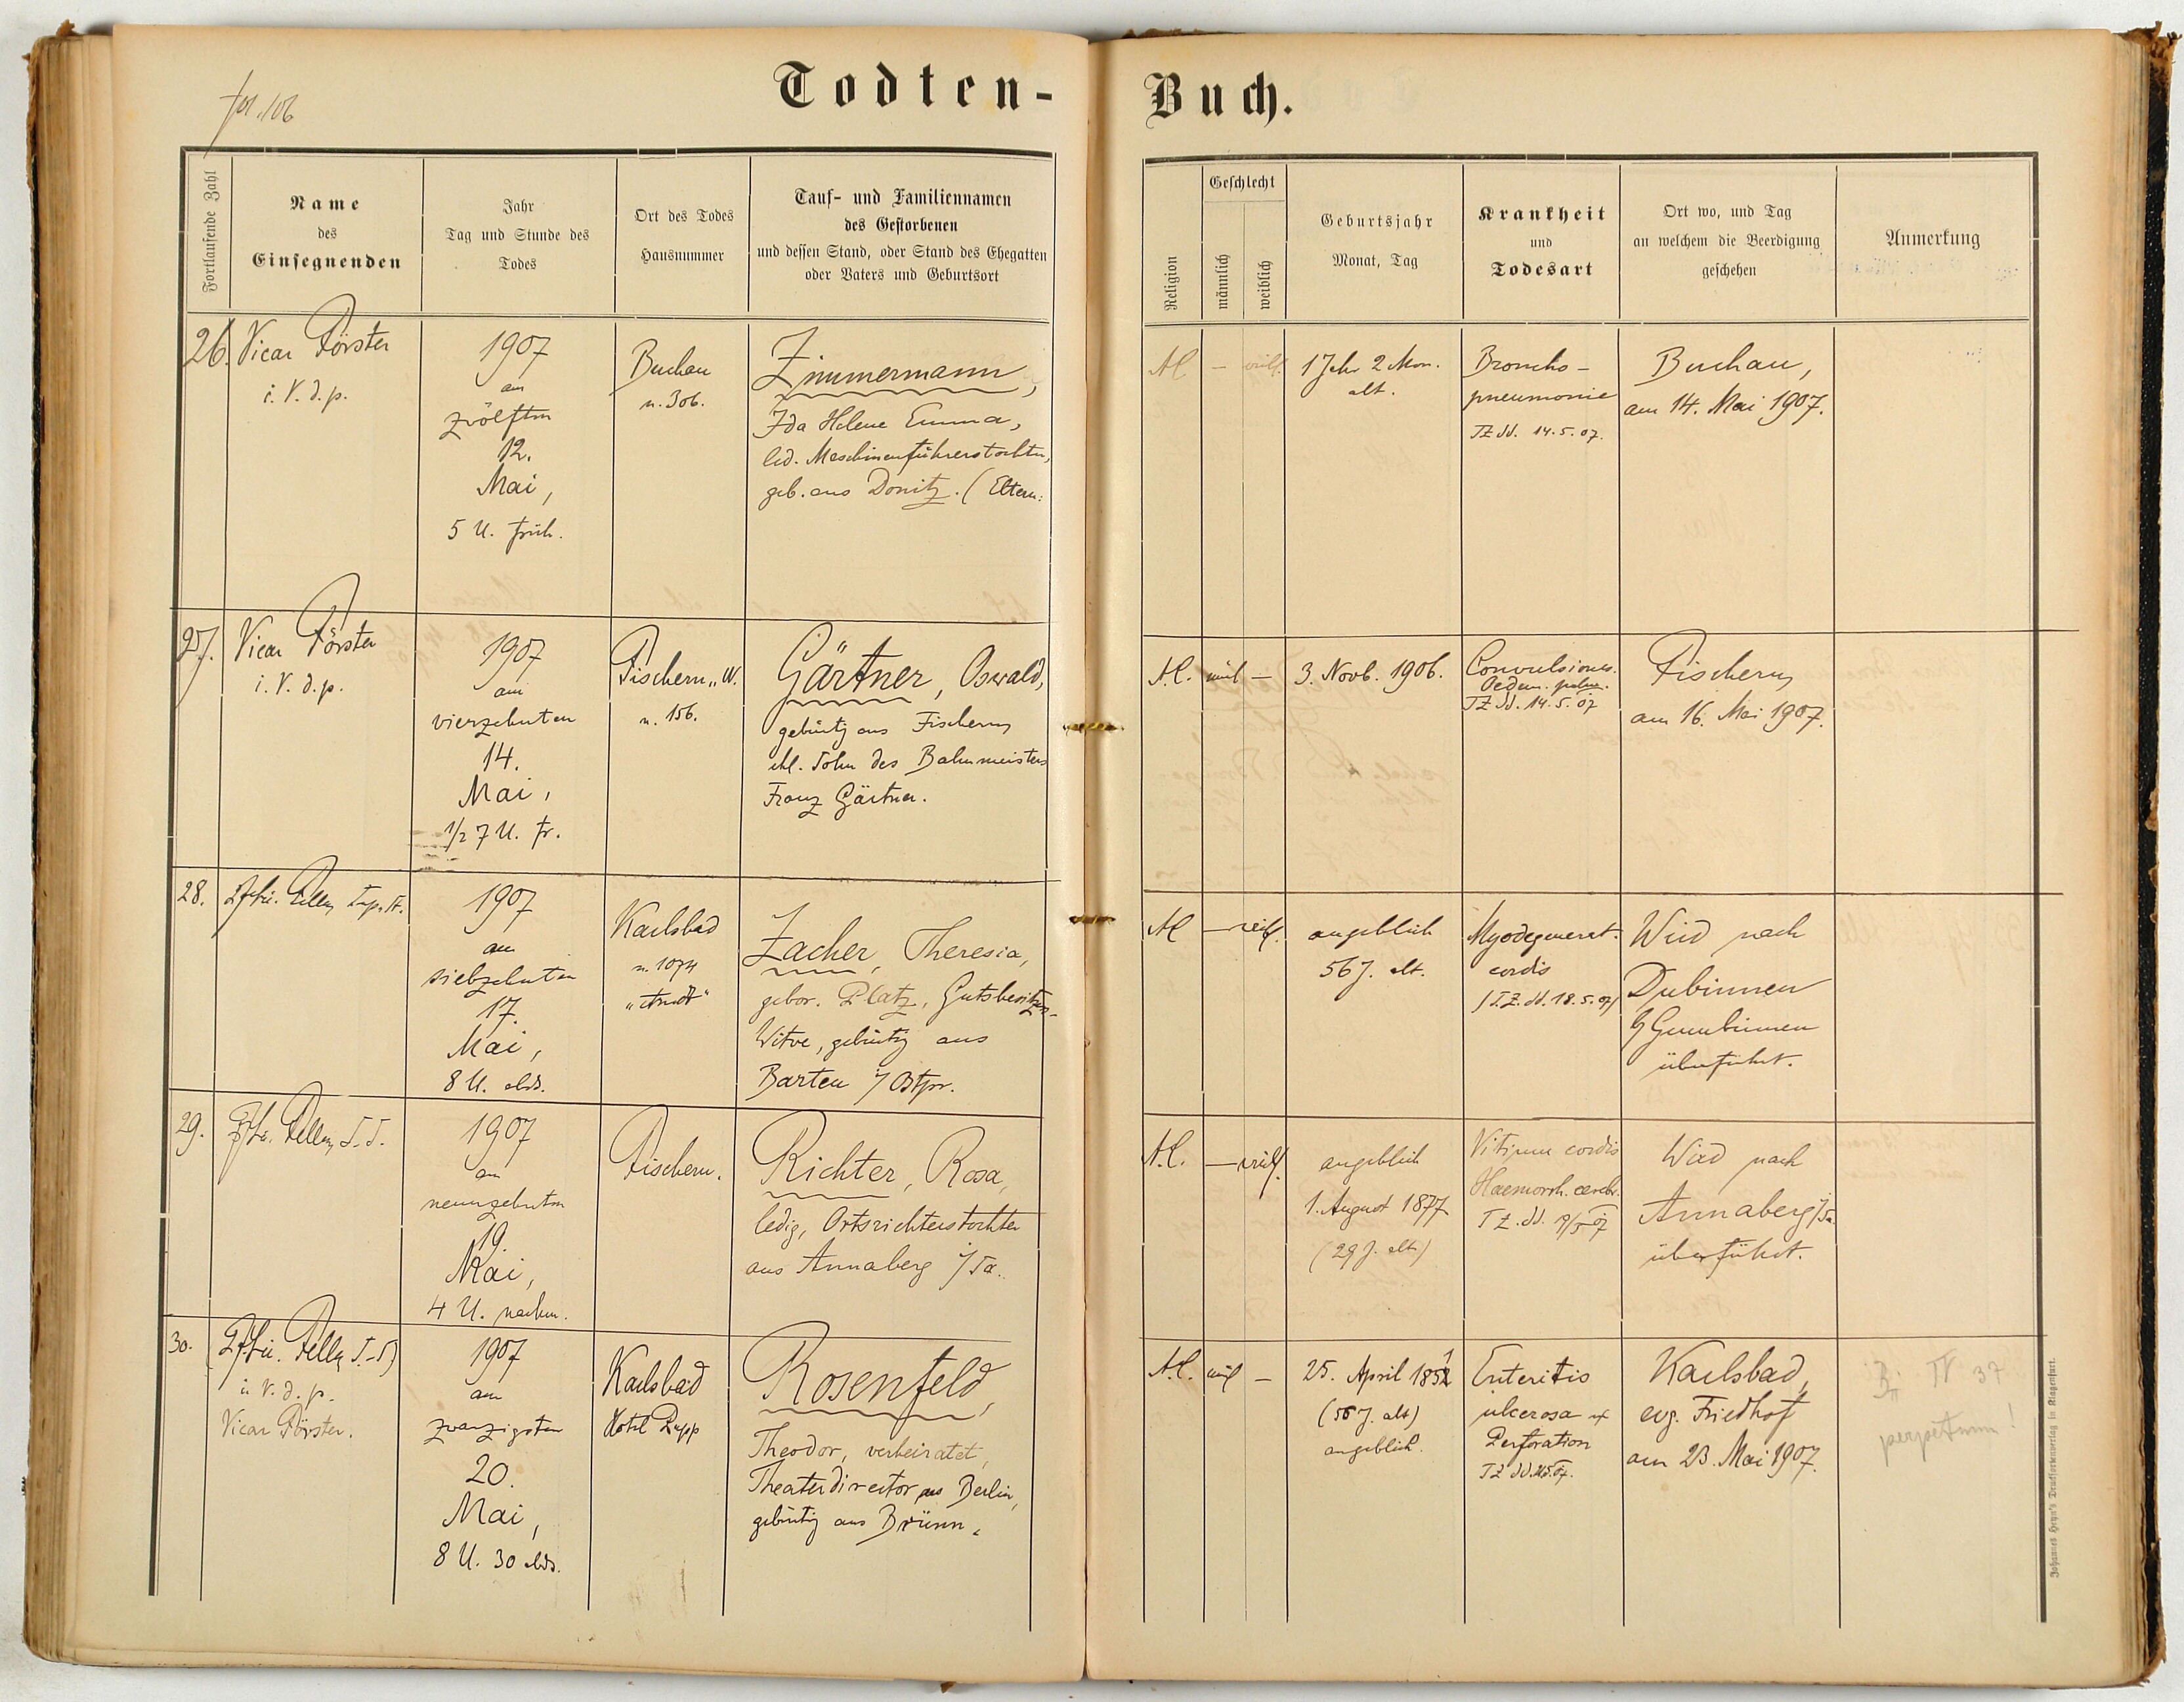 fol. 106
Todten-
Buch.
Fortlaufende Zahl
Name
des
Einsegnenden
Jahr
Tag und Stunde des
Todes
Ort des Todes
Hausnummer
Tauf- und Familiennamen
des Gestorbenen
und dessen Stand, oder Stand des Ehegatten
oder Vaters und Geburtsort
Religion
Geschlecht
männlich
weiblich
Geburtsjahr
Monat, Tag
Krankheit
und
Todesart
Ort wo, und Tag
an welchem die Beerdigung
geschehen
Anmerkung
26.
Vicar Förster
i. V. d. p.
1907
am
zwölften
12.
Mai,
5 U. früh.
Buchau
n. 306.
Zimmermann,
Ida Helene Emma,
led. Maschinenführerstochter,
geb. aus Donitz. (Eltern:
A.C.
–
weibl.
1 Jahr 2 Mon.
alt.
Broncho-
pneumonie
TZ dd. 14.5.07.
Buchau,
am 14. Mai 1907.
27.
Vicar Förster
i. V. d. p.
1907
am
vierzehnten
14.
Mai,
1/2 7 U. fr.
Fischern
n. 156.
Gärtner, Oswald,
gebürtig aus Fischern
ehl. Sohn des Bahnmeisters
Franz Gärtner.
A.C.
ml
–
3. Novb. 1906.
Convulsiones.
Oedem. pulm.
TZ dd. 14.5.07
Fischern,
am 16. Mai 1907.
28.
1907
am
siebzehnten
17.
Mai,
8 U. abds.
Karlsbad
n. 1074
Zacher, Theresia,
gebor. Platz, Gutsbesitzers-
Witwe, gebürtig aus
Barten i/Ostpr.
A.C.
–
weibl.
angeblich
56 J. alt.
Myodegenerat.
cordis
(T.Z. dd. 18.5.07)
Wird nach
Dubinnen
b/Gumbinnen
überführt.
29.
1907
am
neunzehnten
19.
Mai,
4 U. nachm.
Fischern.
Richter, Rosa,
ledig, Ortsrichterstochter
aus Annaberg i/Sa.
A.C.
–
weibl.
angeblich
1. August 1877
(29 J. alt)
Vitium cordis
Haemorrh. cerebr.
Wird nach
Annaberg i/Sa.
überführt.
30.
i. V. d. p.
Vicar Förster.
1907
am
zwanzigsten
20.
Mai,
8 U. 30 abds.
Karlsbad
Hotel Pupp
Rosenfeld,
Theodor, verheiratet,
Theaterdirector aus Berlin,
gebürtig aus Brünn.
A.C.
ml
–
25. April 1851
(56 J. alt)
angeblich.
Enteritis
ulcerosa
Perforation
Karlsbad,
evg. Friedhof
am 23. Mai 1907.
IV 37
perpetuum!
Johannes Heyn's Drucksortenverlag in Klagenfurt.